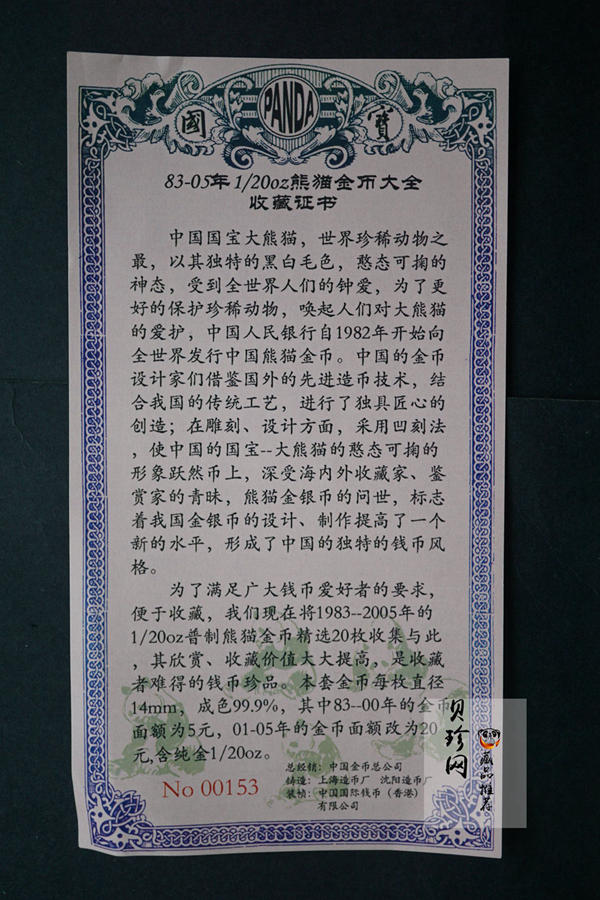 國 PANDA 寶
83-05年1/20oz熊猫金币大全
收藏证书
中国国宝大熊猫，世界珍稀动物之
最，以其独特的黑白毛色，憨态可掬的
神态，受到全世界人们的钟爱，为了更
好的保护珍稀动物，唤起人们对大熊猫
的爱护，中国人民银行自1982年开始向
全世界发行中国熊猫金币。中国的金币
设计家们借鉴国外的先进造币技术，结
合我国的传统工艺，进行了独具匠心的
创造；在雕刻、设计方面，采用凹刻法
，使中国的国宝--大熊猫的憨态可掬的
形象跃然币上，深受海内外收藏家、鉴
赏家的青昧，熊猫金银币的问世，标志
着我国金银币的设计、制作提高了一个
新的水平，形成了中国的独特的钱币风
格。
为了满足广大钱币爱好者的要求，
便于收藏，我们现在将1983--2005年的
1/20oz普制熊猫金币精选20枚收集与此
，其欣赏、收藏价值大大提高，是收藏
者难得的钱币珍品。本套金币每枚直径
14mm，成色99.9%，其中83--00年的金币
面额为5元，01-05年的金币面额改为20
元,含纯金1/20oz。
No 00153
总经销：中国金币总公司
铸造：上海造币厂 沈阳造币厂
装帧：中国国际钱币（香港）
有限公司
贝珍网
藏品推荐